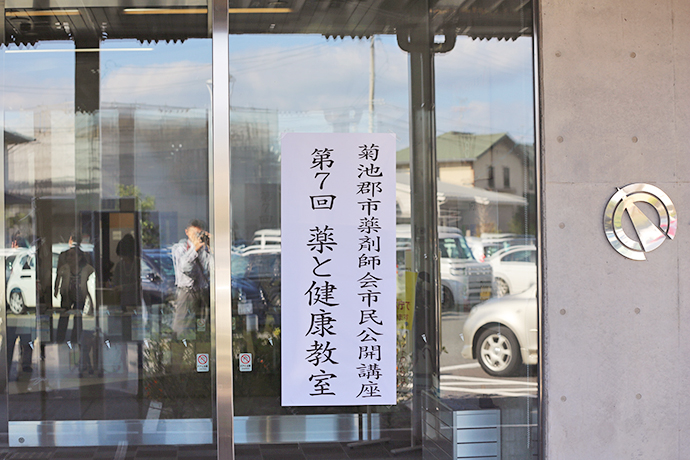 菊池郡市薬剤師会市民公開講座
第7回 薬と健康教室